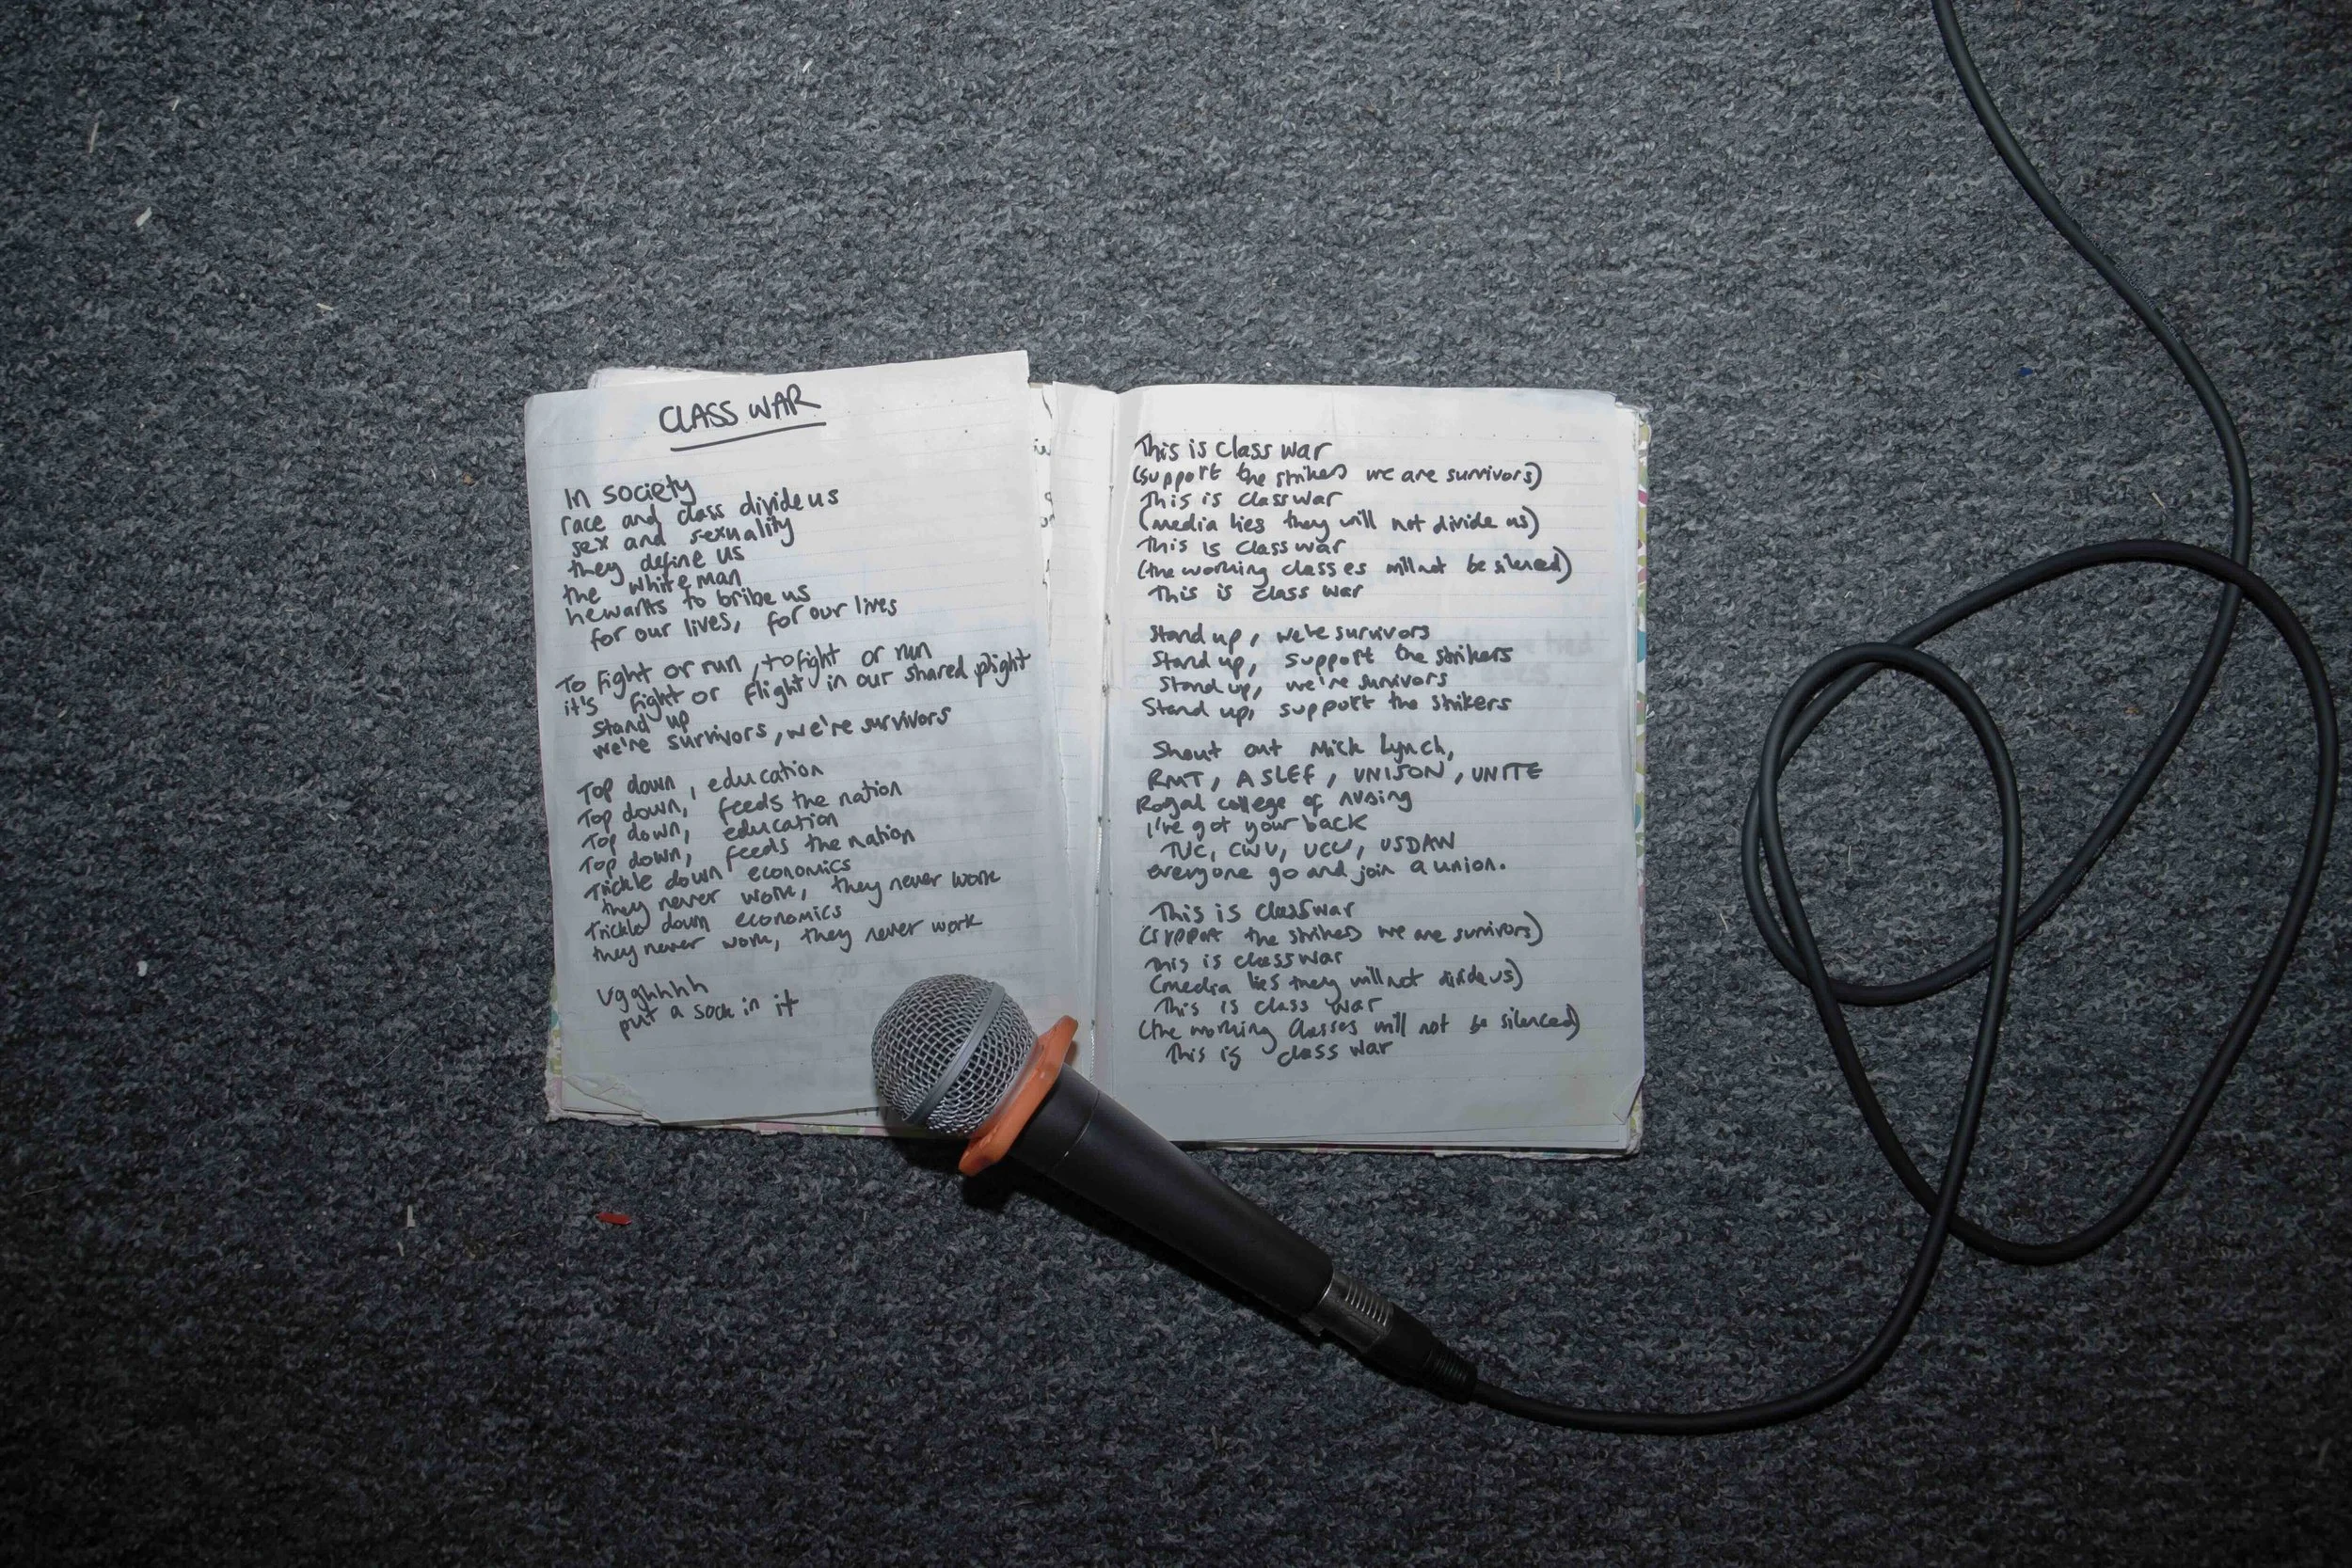 CLASS WAR
In society
race and class divide us
sex and sexuality
they define us
the white man
he wants to bribe us
for our lives, for our lives
To fight or run, to fight or run
it's fight or flight in our shared plight
Stand up
we're survivors, we're survivors
Top down, education
Top down, feeds the nation
Top down, education
Top down, feeds the nation
Trickle down economics
they never work, they never work
Trickle down economics
they never work, they never work
Ugghhhh
put a sock in it
This is class war
(support the strikes we are survivors)
This is class war
(media lies they will not divide us)
This is class war
(the working classes will not be silenced)
This is class war
Stand up, we're survivors
Stand up, support the strikers
Stand up, we're survivors
Stand up, support the strikers
Shout out Mick Lynch,
RMT, ASLEF, UNISON, UNITE
Royal college of nursing
I've got your back
TUC, CWU, UCU, USDAW
everyone go and join a union.
This is class war
(support the strikes we are survivors)
This is class war
(media lies they will not divide us)
This is class war
(the working classes will not be silenced)
This is class war